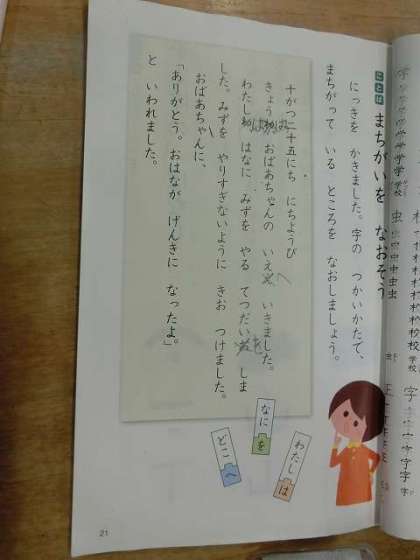 ことば まちがいを なおそう
にっきを かきました。字の つかいかたで、
まちがって いる ところを なおしましょう。
十がつ二十五にち にちようび
きょうは おばあちゃんの いえへ いきました。
わたしは はなに みずを やる てつだいを しま
した。みずを やりすぎないように きお つけました。
おばあちゃんに、
「ありがとう。おはなが げんきに なったよ。」
と いわれました。
わたしは
なにを
どこへ
21